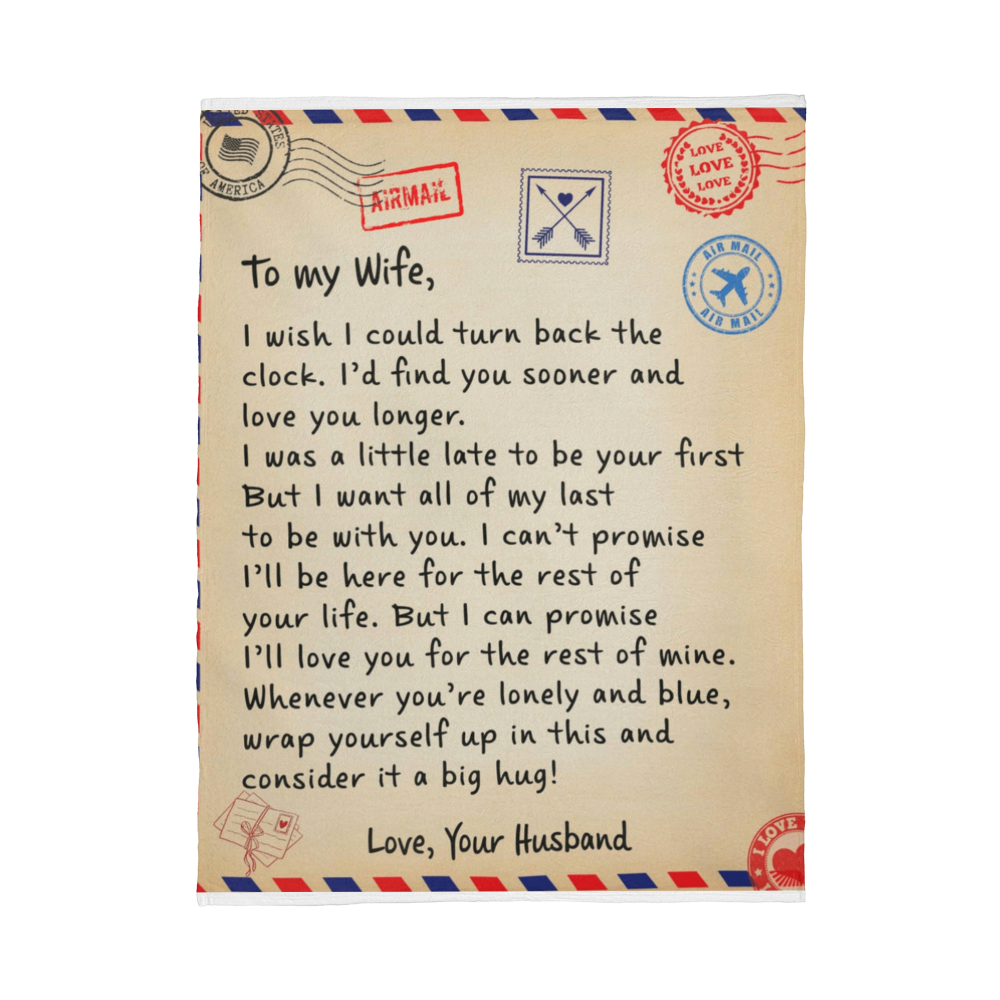 UNITED STATES
OF AMERICA
AIRMAIL
LOVE
LOVE
LOVE
AIR MAIL
AIR MAIL
To my Wife,
I wish I could turn back the
clock. I'd find you sooner and
love you longer.
I was a little late to be your first
But I want all of my last
to be with you. I can't promise
I'll be here for the rest of
your life. But I can promise
I'll love you for the rest of mine.
Whenever you're lonely and blue,
wrap yourself up in this and
consider it a big hug!
Love, Your Husband
I LOVE